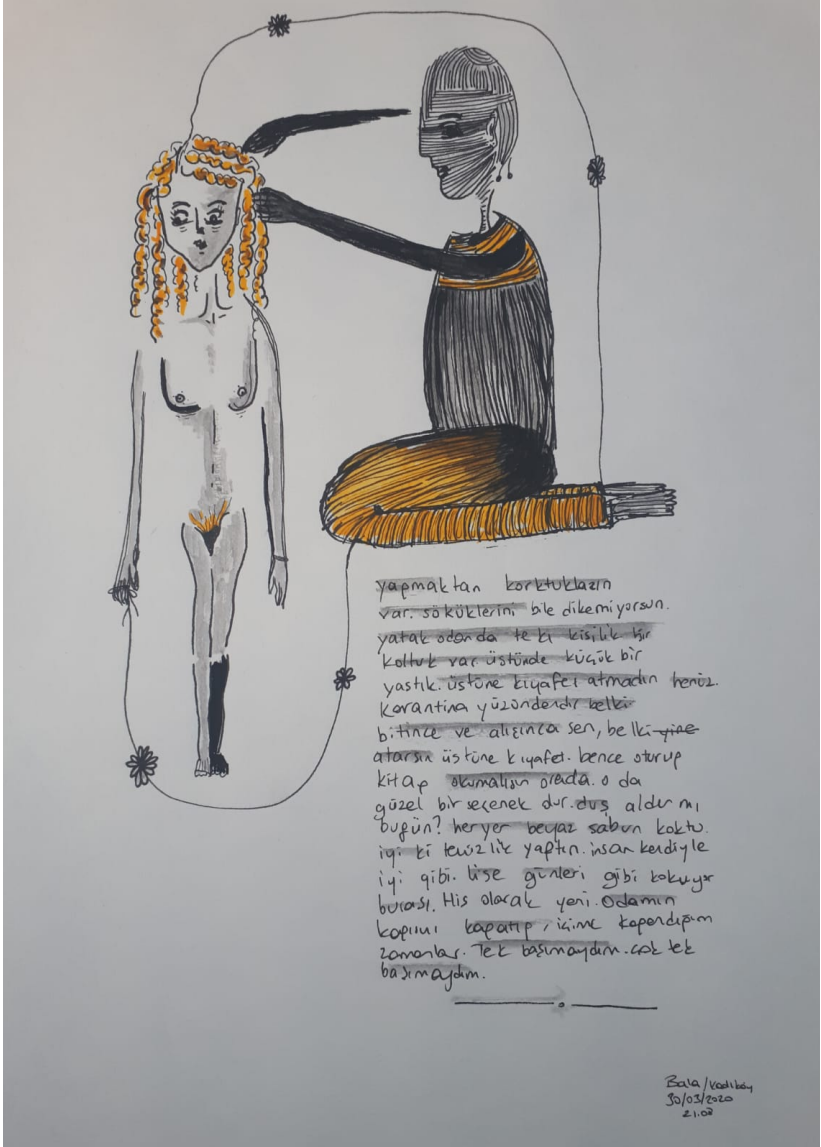 yapmaktan korktukların
var. söküklerini bile dikemiyorsun.
yatak odanda tekikişilik bir
koltuk var. üstünde küçük bir
yastık. üstüne kıyafet atmadın henüz.
Karantina yüzündendir belki
bitince ve alışınca sen, belki yine
atarsın üstüne kıyafet. bence oturup
kitap okumalısın orada. o da
güzel bir seçenek dur. duş aldın mı
bugün? heryer beyaz sabun koktu.
iyi ki temizlik yaptın. insan kendiyle
iyi gibi. lise günleri gibi kokuyor
burası. His olarak yani. Odamın
kapısını kapatıp, içime kapandığım
zamanlar. Tek başımaydım. çok tek
başımaydım.
Bala/Kadıköy
30/03/2020
21.03